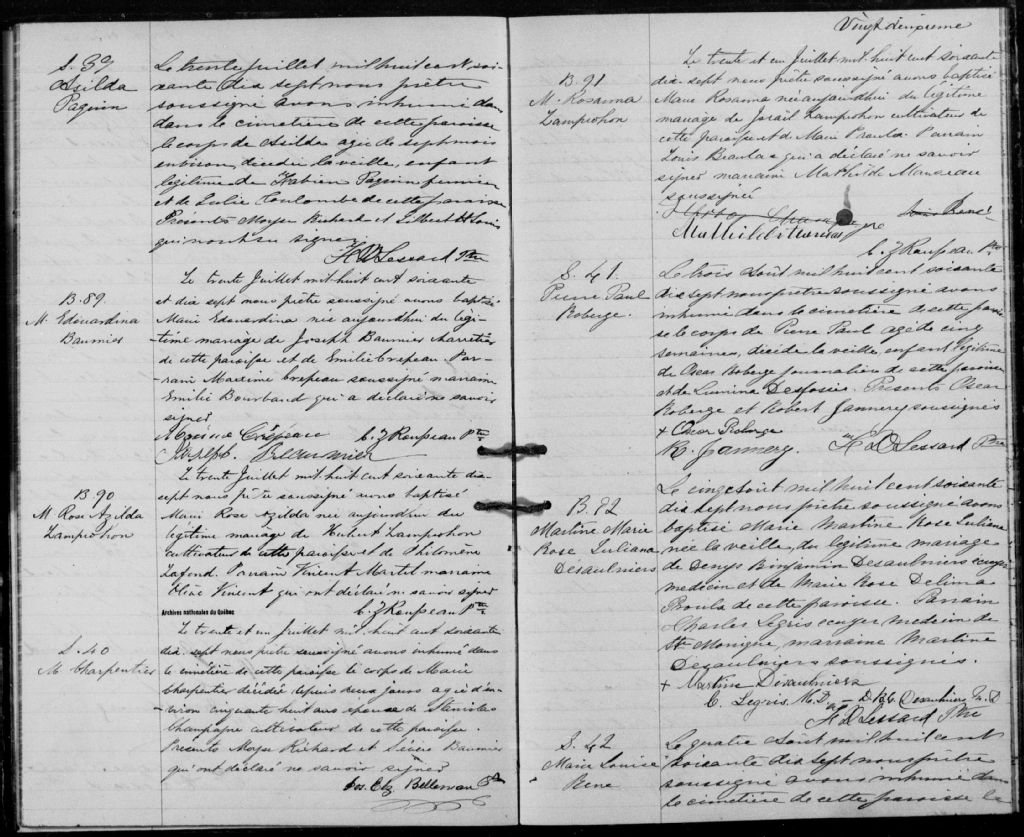 S. 39
Asilda
Paquin
Le trente Juillet mil huit cent soi-
xante dix sept nous prêtre
soussigné avons inhumé dans
dans le cimetière de cette paroisse
le corps de Asilda agée de sept mois
environ, décédée la veille, enfant
légitime de Fabien Paquin fermier
et de Toulombe de cette paroisse
Présents Moyse Richard et St Louis
qui n'ont su signer.
H D Lessard Ptre
B. 89.
M. Edouardina
Baumier
Le trente Juillet mil huit cent soixante
et dix sept nous prêtre soussigné avons baptisé
Marie Edouardina née aujourdhui du légi-
-time mariage de Joseph Baumier charretier
de cette paroisse et de Emilie Crepeau. Par-
-rain Maxime Crepeau soussigné marraine
Emilie Bourbeau qui a déclaré ne savoir
signer
Maxime Crépeau C. Z Roupeau Ptre
Joseph Beaumier
B. 90
M Rose Azilda
Lamprohon
Le trente Juillet mil huit cent soixante dix-
sept nous prêtre soussigné avons baptisé
Marie Rose Azilda née aujourdhui du
légitime mariage de Hubert Lamprohon
cultivateur de cette paroisse et de Philomène
Lafond. Parrain Vincent Martel marraine
Vincent qui ont déclaré ne savoir signer
C. Z Roupeau Ptre
Archives nationales du Québec
S. 40
M Charpentier
Le trente et un Juillet mil huit cent soixante
dix sept nous prêtre soussigné avons inhumé dans
le cimetière de cette paroisse le corps de Marie
Charpentier décédée depuis deux jours agée d'en-
viron cinquante huit ans épouse de Stanislas
Champagne cultivateur de cette paroisse.
Presents Moyse Richard et Sévère Baumier
qui ont déclaré ne savoir signer
Jos. Elz Bellemare Ptre
Vingt deuxieme
B. 91
M. Rosanna
Lamprohon
Le trente et un Juillet mil huit cent soixante
dix-sept nous prêtre soussigné avons baptisé
Marie Rosanna née aujourdhui du légitime
mariage de Israël Lamprohon cultivateur de
cette paroisse et de Marie Proulx Parrain
Louis qui a déclaré ne savoir
signer marraine Mathilde Manseau
soussignée
Mathilde Manseau
C. Z Roupeau Ptre
S. 41.
Pierre Paul
Roberge.
Le trois Août mil huit cent soixante
dix sept nous prêtre soussigné avons
inhumé dans le cimetière de cette parois-
se le corps de Pierre Paul agé de cinq
semaines, décédé la veille, enfant légitime
de Oscar Roberge journalier de cette paroisse
et de Lumina Desfossés. Présents Oscar
Roberge et Robert Jannery soussignés
+ Oscar Roberge
R. Jannery. H D Lessard Ptre
B. 92
Martine Marie
Rose Juliana
Desaulniers
Le cinq Août mil huit cent soixante
dix sept nous prêtre soussigné avons
baptisé Marie Martine Rose Juliana
née la veille, du légitime mariage
de Denys Binjamin Desaulniers écuyer
medecin et de Marie Rose Delima
Proulx de cette paroisse. Parrain
Charles Legris écuyer medecin de
Ste Monique, marraine Martine
Desaulniers soussignés.
+ Martine Désaulniers
C. Legris. M.D — D. B. C. Desaulniers M. D
H D Lessard Ptre
S. 42
Marie Louise
Rene
Le quatre Août mil huit cent
soixante dix sept nous prêtre
soussigné avons inhumé dans
le cimetière de cette paroisse le